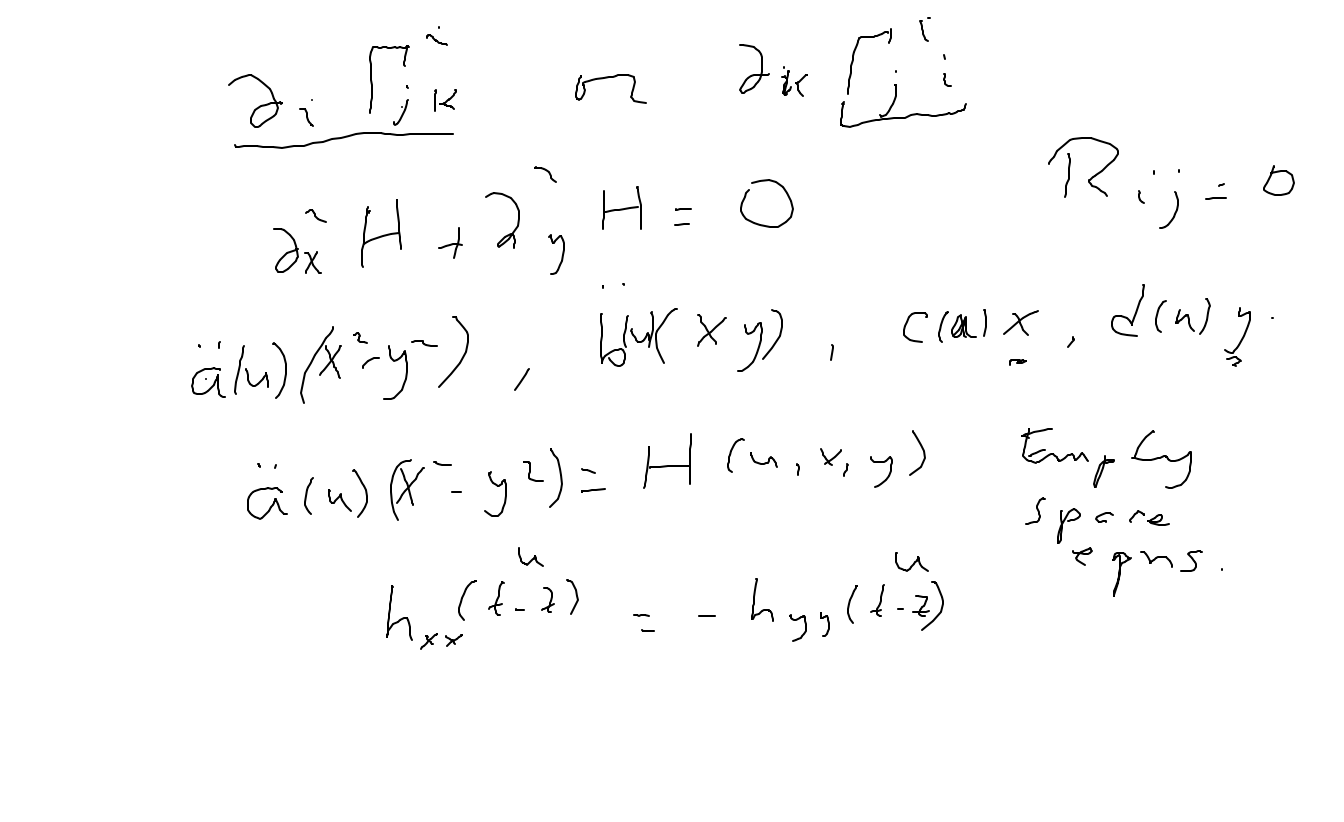 ∂ᵢ Γⁱⱼₖ or ∂ₖ Γⁱⱼᵢ
Rᵢⱼ = 0
∂²ₓ H + ∂²_y H = 0
ä(u)(x²-y²), b̈(u)(xy), c(u)x, d(u)y.
ä(u)(x²-y²) = H(u,x,y) Empty
space
eqns.
u u
hₓₓ(t-z) = -h_yy(t-z)